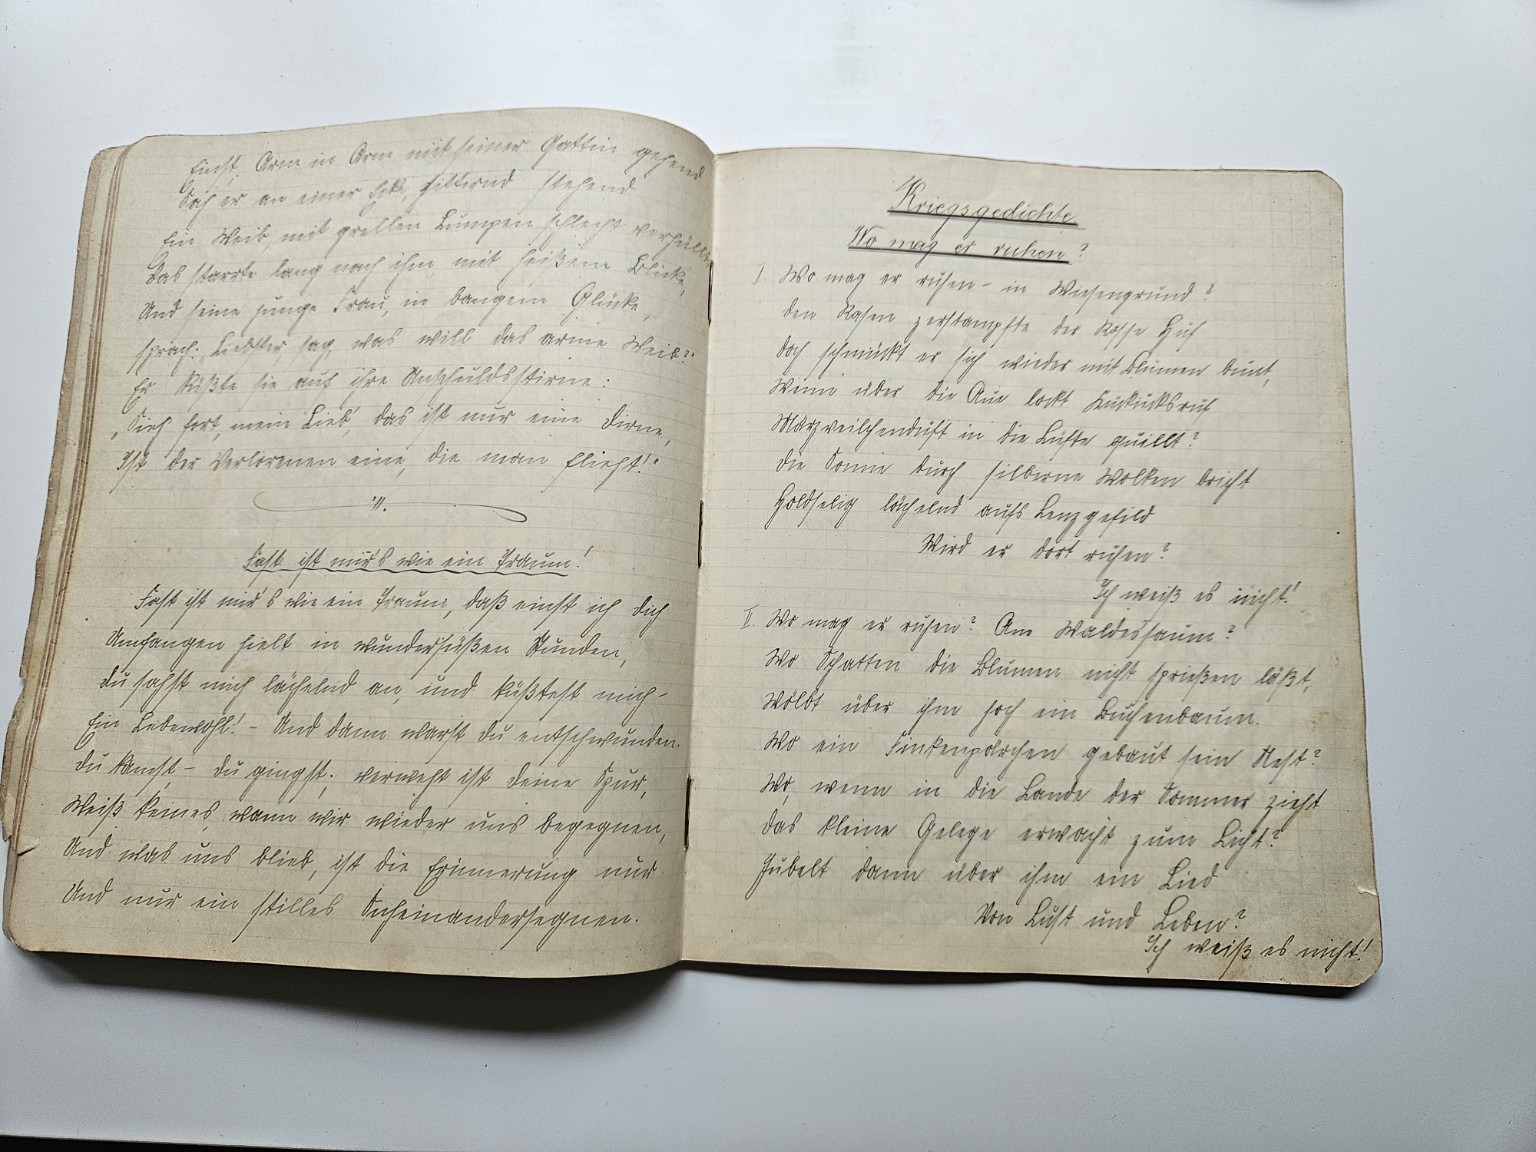 Einst, Arm in Arm mit seiner Gattin gehend
Sah er an einer Ecke, zitternd stehend
Ein Weib, mit grellen Lumpen schlecht verhüllt
Das starrte lang nach ihm, mit heißem Blicke,
Und seine junge Frau, in bangem Glücke,
sprach: „Liebster sag, was will das arme Weib?"
Er küßte sie auf ihre Unschuldsstirne:
„Sieh fort, mein Lieb', das ist nur eine Dirne,
Ist der Verlorenen eine, die man flieht!"
Fast ist mir's wie ein Traum!
Fast ist mir's wie ein Traum, daß einst ich dich
Umfangen hielt in wundersüßen Stunden,
Du sahst mich lächelnd an, und küßtest mich -
Ein Lebewohl! - Und dann warst du entschwunden.
Du kamst - du gingst; verweht ist deine Spur,
Weiß keines, wann wir wieder uns begegnen,
Und was uns blieb, ist die Erinnerung nur
Und nur ein stilles Sicheinandersegnen.
Kriegsgedichte
Wo mag er ruhen?
I. Wo mag er ruhen - in Wiesengrund?
Den Rasen zerstampfte der Rosse Huf
Doch schmückt er sich wieder mit Blumen bunt,
Wenn über die Aue lockt Kuckucksruf
Märzveilchenduft in die Lüfte quillt?
Die Sonne durch silberne Wolken bricht
Holdselig lächelnd aufs Lenzgefild
Wird er dort ruhen?
Ich weiß es nicht!
II. Wo mag er ruhen? Am Waldessaum?
Wo Schatten die Blumen nicht sprießen läßt,
Wölbt über ihm hoch ein Buchenbaum.
Wo ein Finkenpärchen gebaut sein Nest?
Wo, wenn in die Lande der Sommer zieht
Das kleine Gelege erwacht zum Licht?
Jubelt dann über ihm ein Lied
Von Lust und Leben?
Ich weiß es nicht!